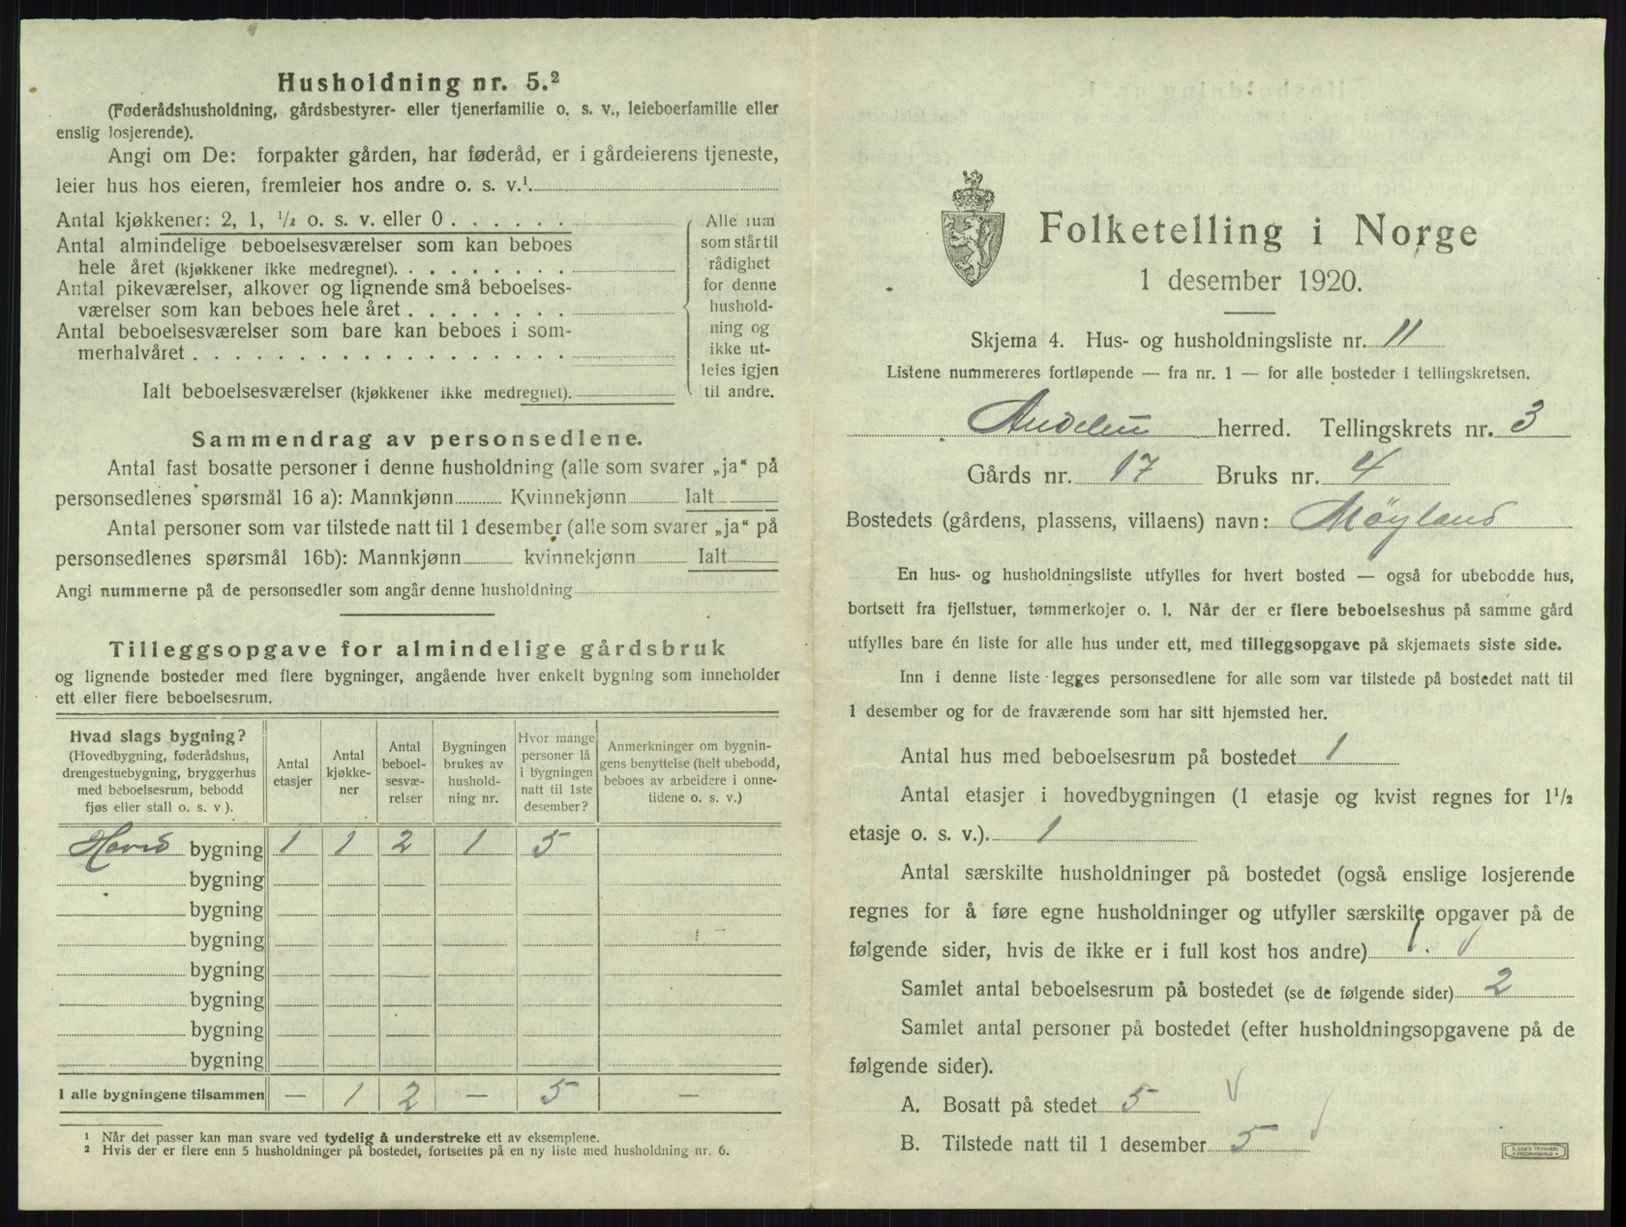 Husholdning nr. 5.²
(Føderådshusholdning, gårdsbestyrer- eller tjenerfamilie o. s. v., leieboerfamilie eller
enslig losjerende).
Angi om De: forpakter gården, har føderåd, er i gårdeierens tjeneste,
leier hus hos eieren, fremleier hos andre o. s. v.¹
Antal kjøkkener: 2, 1, ¹/₂ o. s. v. eller 0 . . . . . .
Antal almindelige beboelsesværelser som kan beboes
hele året (kjøkkener ikke medregnet). . . . . . . . .
Antal pikeværelser, alkover og lignende små beboelses-
værelser som kan beboes hele året . . . . . . . .
Antal beboelsesværelser som bare kan beboes i som-
merhalvåret . . . . . . . . . . . . . . . . . .
Ialt beboelsesværelser (kjøkkener ikke medregnet).
Alle rum
som står til
rådighet
for denne
hushold-
ning og
ikke ut-
leies igjen
til andre.
Sammendrag av personsedlene.
Antal fast bosatte personer i denne husholdning (alle som svarer „ja“ på
personsedlenes spørsmål 16 a): Mannkjønn Kvinnekjønn Ialt
Antal personer som var tilstede natt til 1 desember (alle som svarer „ja“ på
personsedlenes spørsmål 16b): Mannkjønn kvinnekjønn Ialt
Angi nummerne på de personsedler som angår denne husholdning
Tilleggsopgave for almindelige gårdsbruk
og lignende bosteder med flere bygninger, angående hver enkelt bygning som inneholder
ett eller flere beboelsesrum.
Hvad slags bygning?
(Hovedbygning, føderådshus,
drengestuebygning, bryggerhus
med beboelsesrum, bebodd
fjøs eller stall o. s. v ).
Antal
etasjer
Antal
kjøkke-
ner
Antal
beboel-
sesvæ-
relser
Bygningen
brukes av
hushold-
ning nr.
Hvor mange
personer lå
i bygningen
natt til 1ste
desember?
Anmerkninger om bygnin-
gens benyttelse (helt ubebodd,
beboes av arbeidere i onne-
tidene o. s. v.)
Hoved bygning 1 1 2 1 5
bygning
bygning
bygning
bygning
bygning
bygning
bygning
I alle bygningene tilsammen — 1 2 — 5 —
¹ Når det passer kan man svare ved tydelig å understreke ett av eksemplene.
² Hvis der er flere enn 5 husholdninger på bostedet, fortsettes på en ny liste med husholdning nr. 6.
Folketelling i Norge
1 desember 1920.
Skjema 4. Hus- og husholdningsliste nr. 11
Listene nummereres fortløpende — fra nr. 1 — for alle bosteder i tellingskretsen.
herred. Tellingskrets nr. 3
Gårds nr. 17 Bruks nr. 4
Bostedets (gårdens, plassens, villaens) navn: Møyland
En hus- og husholdningsliste utfylles for hvert bosted — også for ubebodde hus,
bortsett fra fjellstuer, tømmerkojer o. l. Når der er flere beboelseshus på samme gård
utfylles bare én liste for alle hus under ett, med tilleggsopgave på skjemaets siste side.
Inn i denne liste legges personsedlene for alle som var tilstede på bostedet natt til
1 desember og for de fraværende som har sitt hjemsted her.
Antal hus med beboelsesrum på bostedet 1
Antal etasjer i hovedbygningen (1 etasje og kvist regnes for 1¹/₂
etasje o. s. v.). 1
Antal særskilte husholdninger på bostedet (også enslige losjerende
regnes for å føre egne husholdninger og utfyller særskilte opgaver på de
følgende sider, hvis de ikke er i full kost hos andre) 1.
Samlet antal beboelsesrum på bostedet (se de følgende sider) 2
Samlet antal personer på bostedet (efter husholdningsopgavene på de
følgende sider).
A. Bosatt på stedet 5
B. Tilstede natt til 1 desember 5